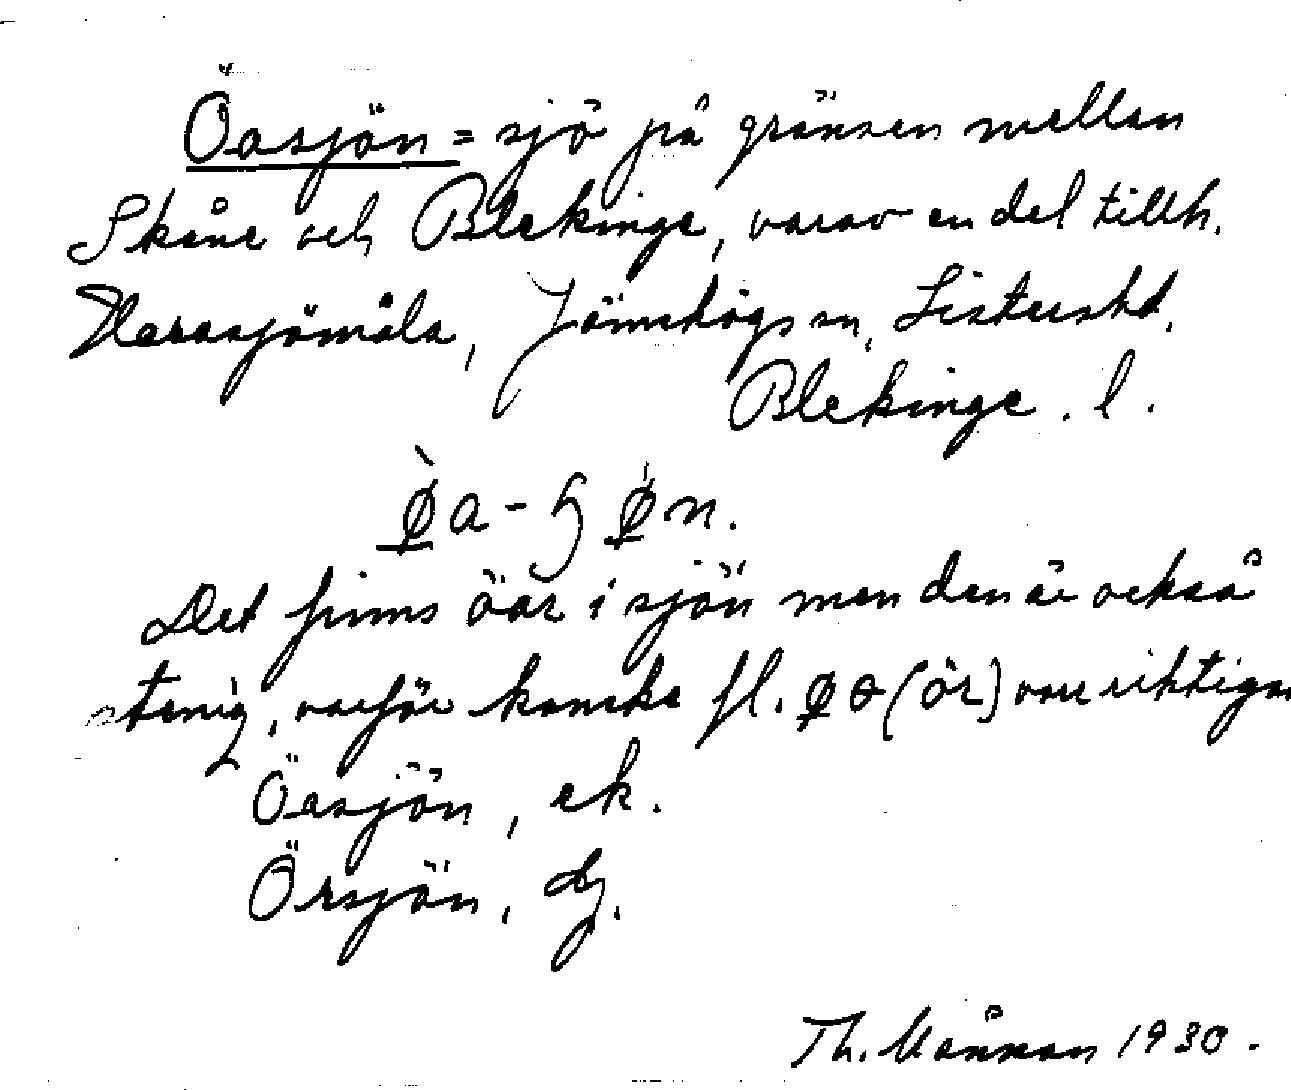 Öasjön = sjö på gränsen mellan
Skåne och Blekinge, varav en del tillh.
Harasjömåla, Jämshögs sn, Listershd,
Blekinge. l.
Det finns öar i sjön men den är också
stenig, varför kanske fl. (ör) vore riktigar
Öasjön, ek.
Örsjön,
Th. 1930.